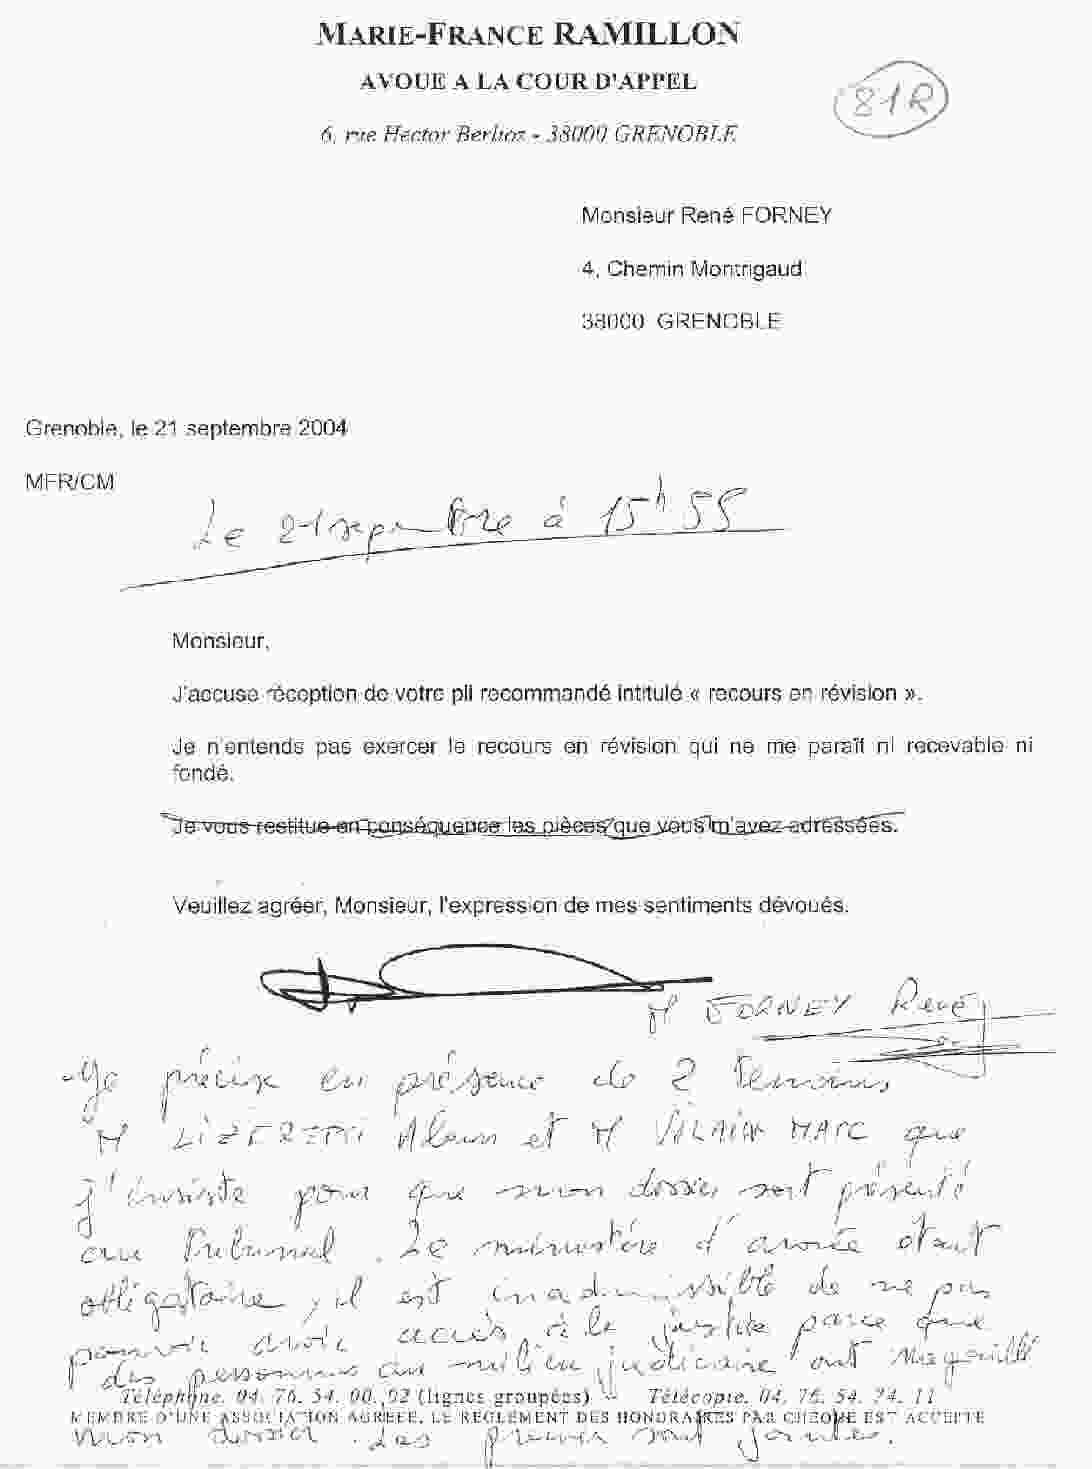 MARIE-FRANCE RAMILLON
AVOUE A LA COUR D'APPEL
81R
6, rue Hector Berlioz - 38000 GRENOBLE
Monsieur René FORNEY
4, Chemin Montrigaud
38000 GRENOBLE
Grenoble, le 21 septembre 2004
MFR/CM
Le 21 septembre à 15h55
Monsieur,
J'accuse réception de votre pli recommandé intitulé « recours en révision ».
Je n'entends pas exercer le recours en révision qui ne me paraît ni recevable ni
fondé.
Je vous restitue en conséquence les pièces que vous m'avez adressées.
Veuillez agréer, Monsieur, l'expression de mes sentiments dévoués.
M FORNEY René
- Je précise en présence de 2 témoins
M Alain et M VILAIN MARC que
j'insiste pour que mon dossier soit présenté
au Tribunal. Le ministère d'avoué étant
obligatoire, il est inadmissible de ne pas
pouvoir avoir accès à la justice parce que
des personnes du milieu judiciaire ont magouillé
Téléphone. 04. 76. 54. 00. 02 (lignes groupées) - Télécopie. 04. 76. 54. 74. 11
MEMBRE D'UNE ASSOCIATION AGREEE, LE REGLEMENT DES HONORAIRES PAR CHEQUE EST ACCEPTE
mon dossier. Les preuves sont jointes.